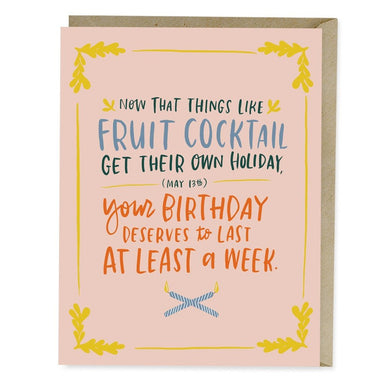 NOW THAT THINGS LIKE
FRUIT COCKTAIL
GET THEIR OWN HOLIDAY,
(MAY 13th)
your BIRTHDAY
DESERVES to LAST
AT LEAST a WEEK.